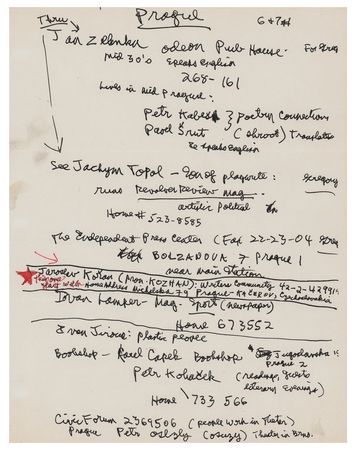 Thru
Prague
6+7th
Jan Zelenka odeon Pub House. For Greg
mid 30's speaks english
268-161
Lives in mid Prague:
Petr Kabeš } poetry connections
Pavel Šrut (shroot) Translator
he speaks english
See Jachym Topol - son of playwrite: Gregory
runs Revolver Review mag
artistic political
Home # 523-8585
The Independent Press Center (Fax 22-23-04 Greg
BOLZANOVA 7 Prague 1
near main station
Jaroslav Kořan (pron-KOZHAN); Writers Community 42-2-42991
Home Address Prague- Czechoslovakia
Ivan Lamper- Mag. Sport (newspaper)
Home 673552
Evan Jirous: plastic people
Bookshop - Karel Capek Bookshop Jugoslavska
Prague 2
Petr Kovačék (readings, guests
literary evenings)
Home 733 566
Civic Forum 2369506 (people work in theater)
Prague Petr Oslzly (oslzly) Theatre in Brno.